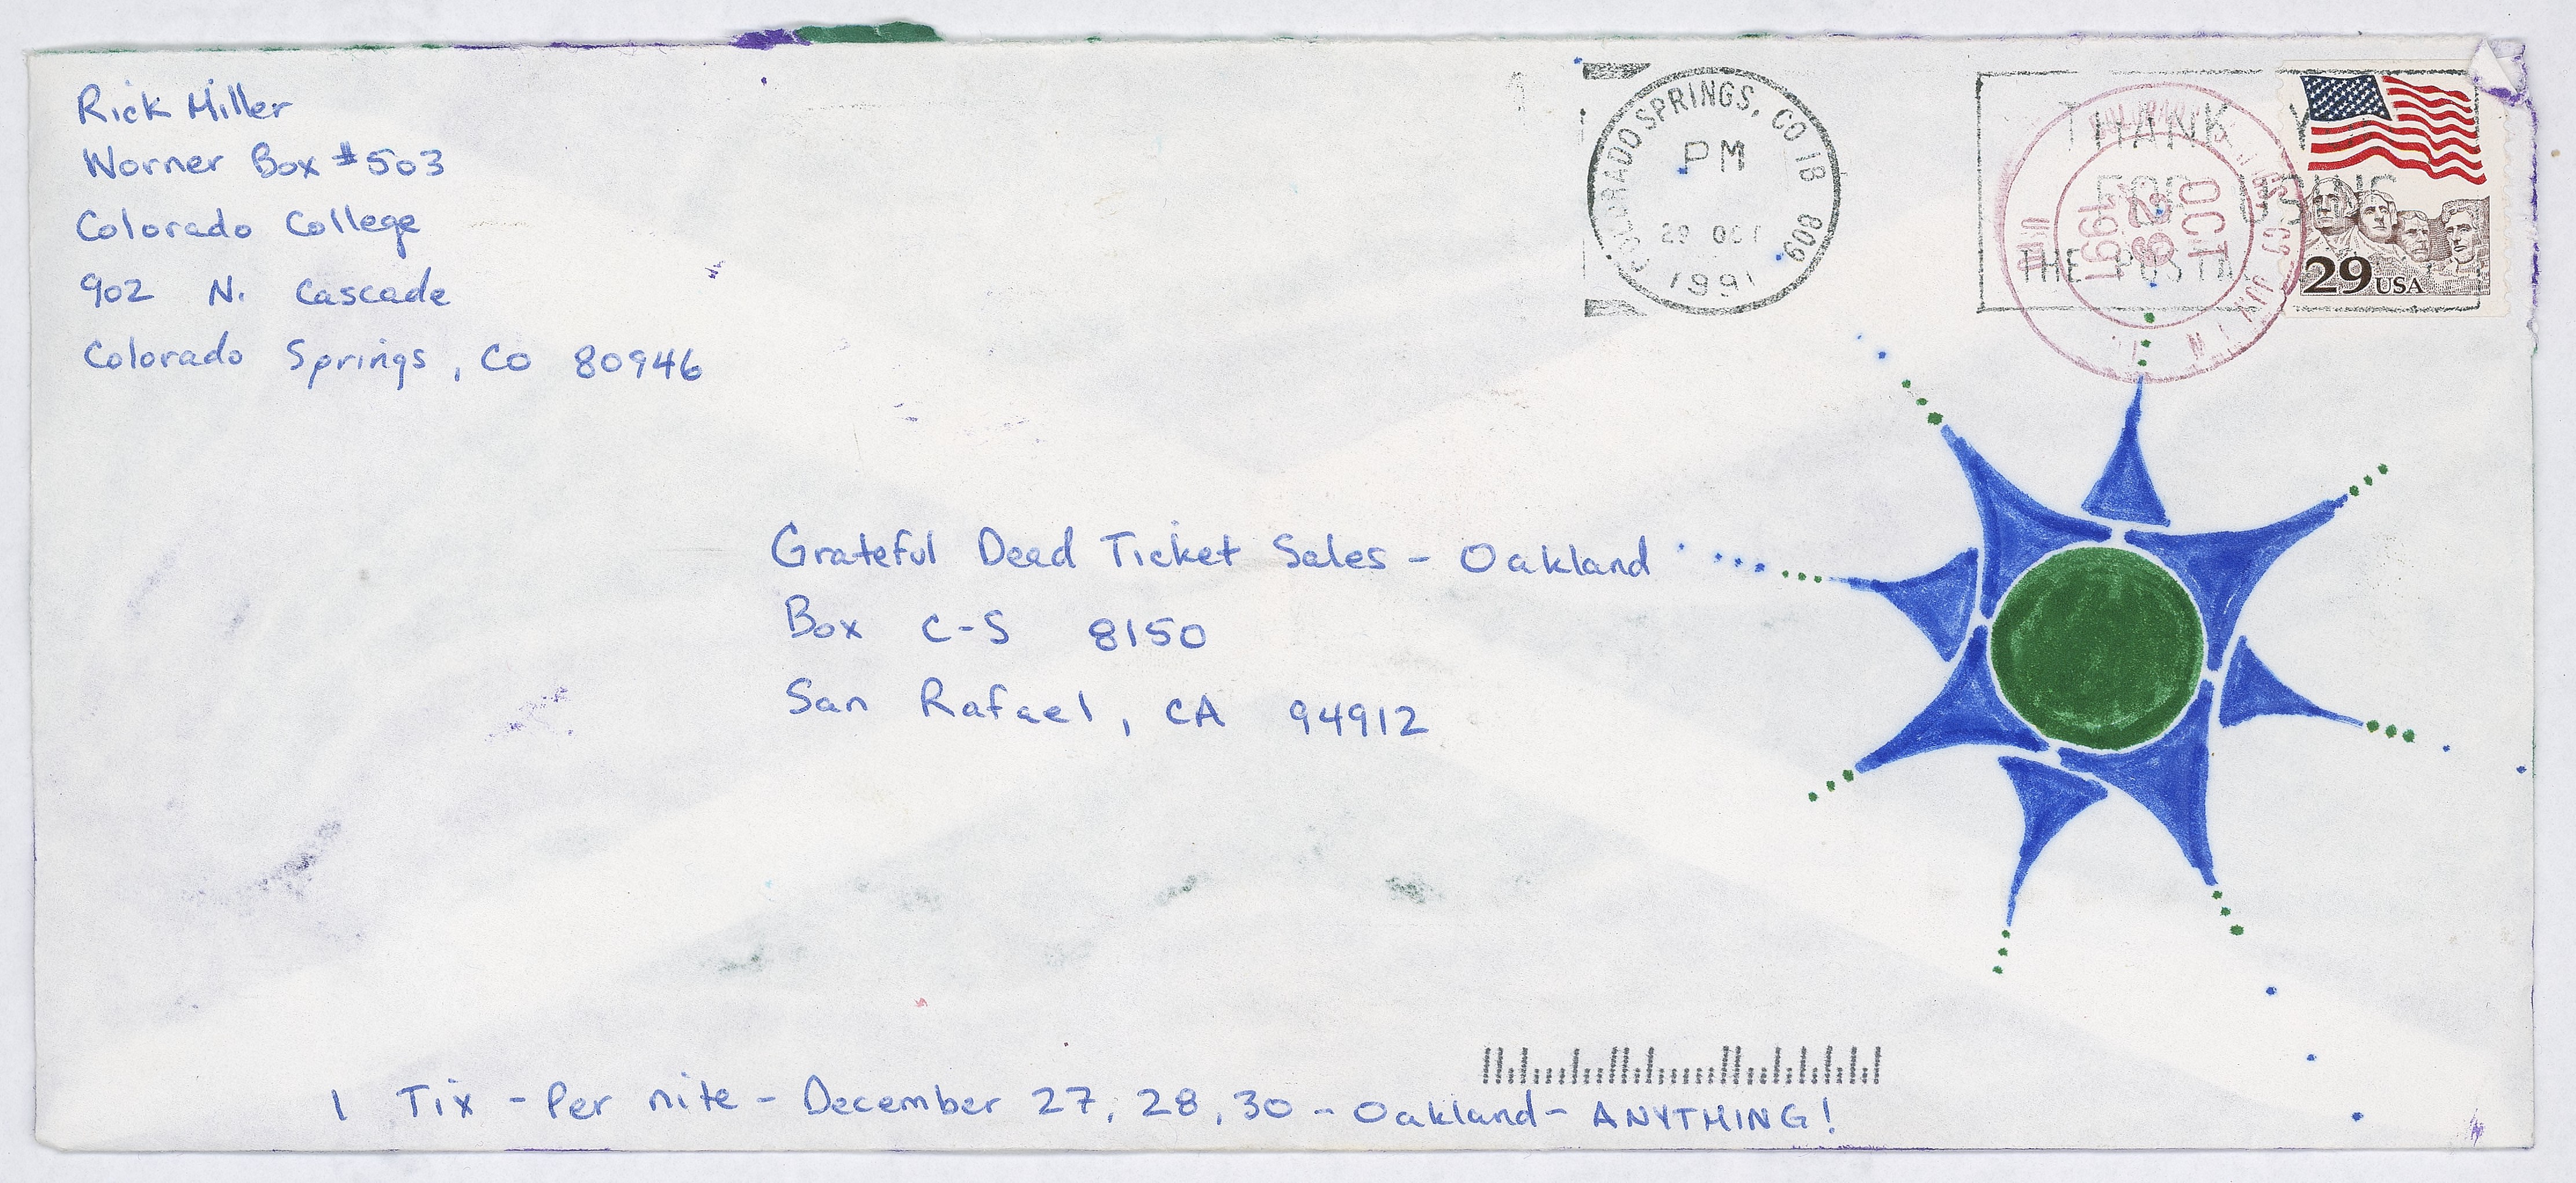 Rick Miller
Worner Box #503
Colorado College
902 N. Cascade
Colorado Springs, CO 80946
COLORADO SPRINGS, CO 809
PM
29 OCT
1991
THANK Y
FOR USING
THE POSTAL
OCT
29
1991
29 USA
Grateful Dead Ticket Sales - Oakland
Box C-S 8150
San Rafael, CA 94912
1 Tix - Per nite - December 27, 28, 30 - Oakland - ANYTHING!